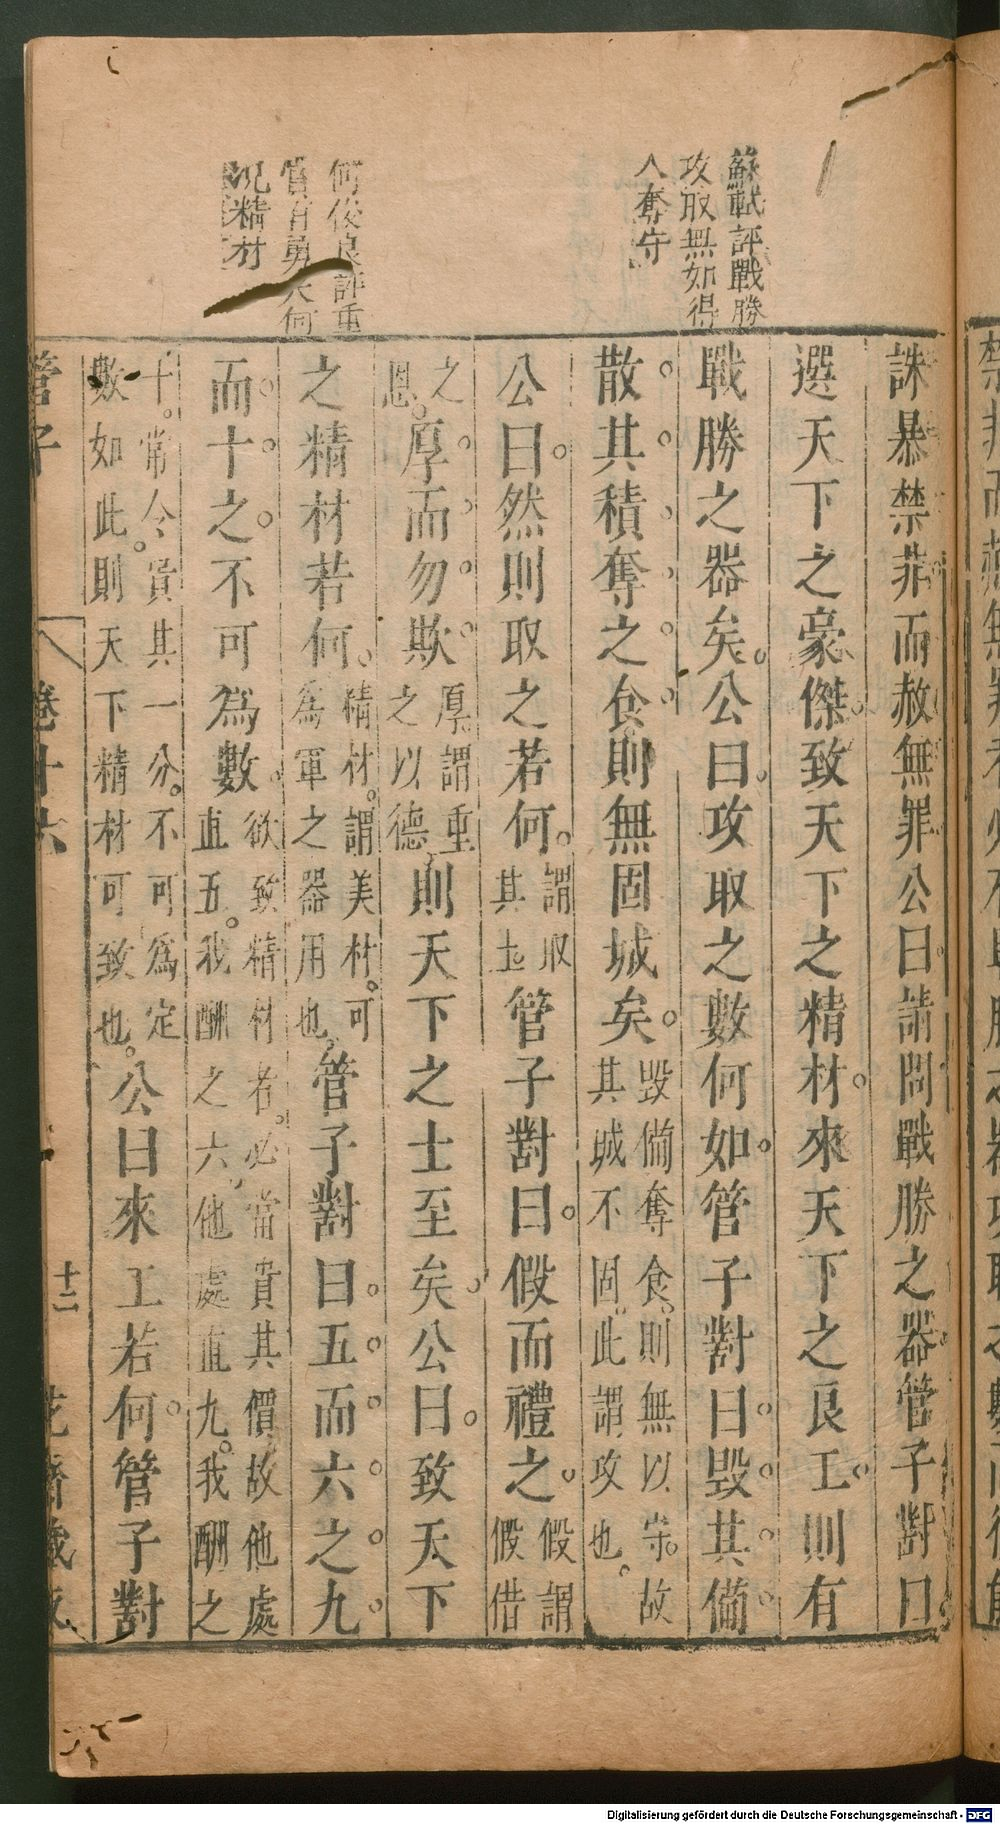 蘇軾評戰勝
攻取無如得
人奪守
何俊良評重
賞有勇夫何
況精材
誅暴禁非而赦無罪公曰請問戰勝之器管子對曰
選天下之豪傑致天下之精材來天下之良工則有
戰勝之器矣公曰攻取之數何如管子對曰毀其備
散其積奪之食則無固城矣毀備奪食則無以守故其城不固此謂攻也
公曰然則取之若何謂取其士管子對曰假而禮之假謂假借
之恩厚而勿欺厚謂重之以德則天下之士至矣公曰致天下
之精材若何精材謂美材可為軍之器用也管子對曰五而六之九
而十之不可為數欲致精材者必當貴其價故他處直五我酬之六他處直九我酬之
十常令貴其一分不可為定數如此則天下精材可致也公曰來工若何管子對
管子 卷十六 十二 花齋藏板
Digitalisierung gefördert durch die Deutsche Forschungsgemeinschaft - DFG